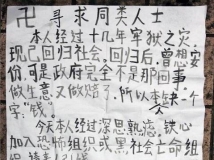 卍 寻求同类人士
本人经过十几年牢狱之灾
现已回归社会,回归后,曾想安
份,可是政府完全不是那回事
做生意又做赔了,所以本人缺一个
字"钱。
今天本人经过深思熟虑,铁心
加入恐怖组织或黑社会亡命组